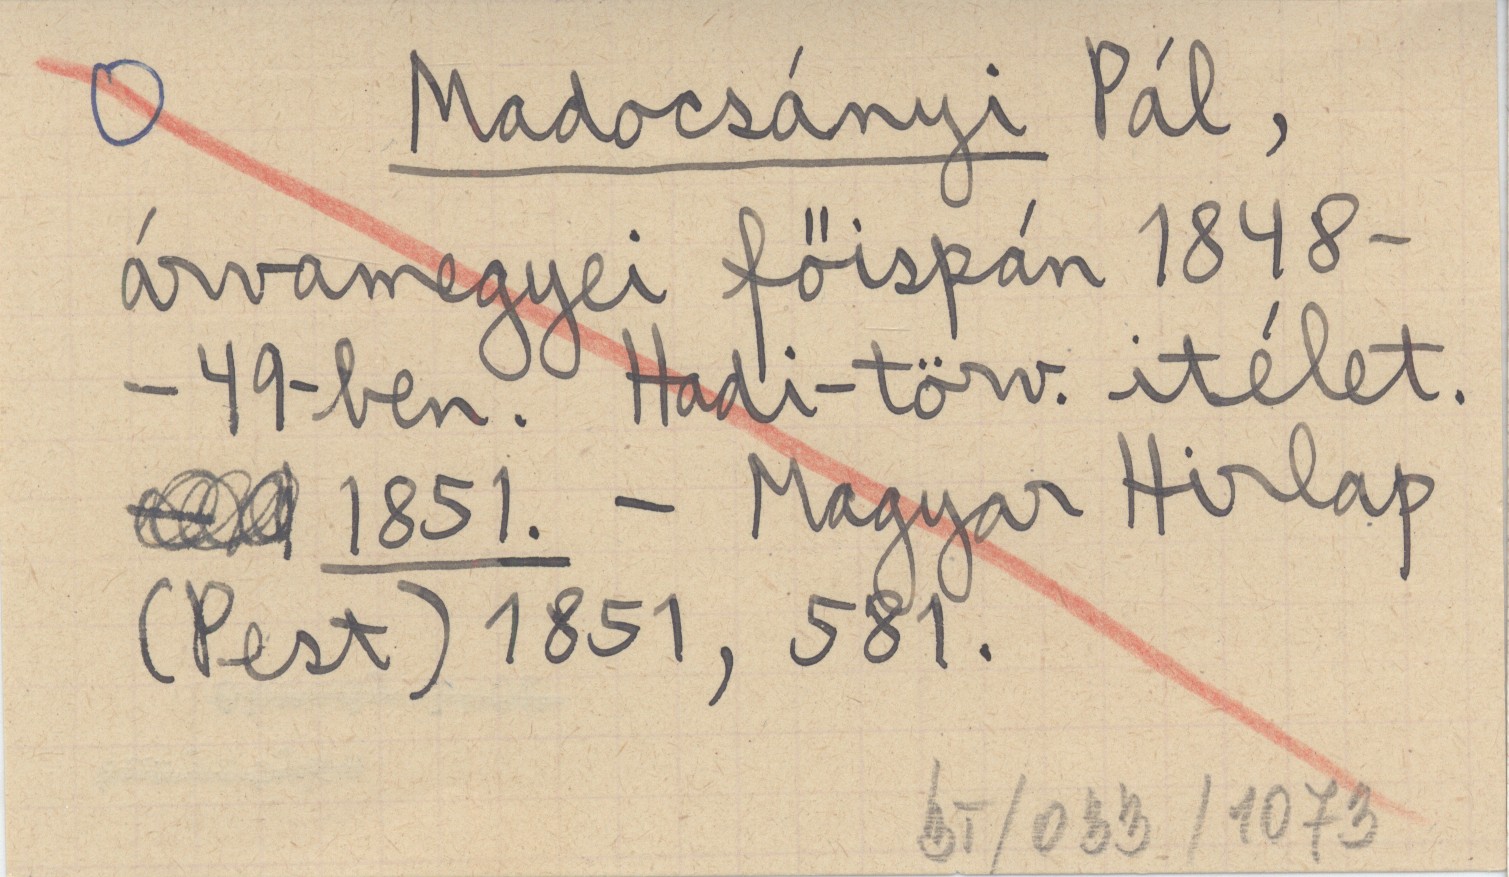 Madocsányi Pál,
árvamegyei főispán 1848-
-49-ben. Hadi-törv. itélet.
1851. - Magyar Hirlap
(Pest) 1851, 581.
/033/1073